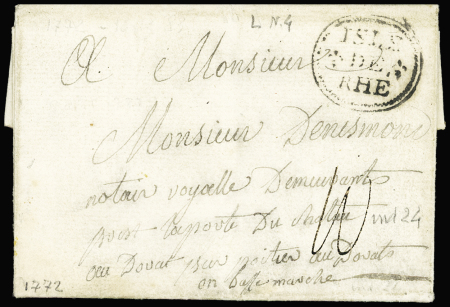 L N 4
ISLE
DE
RHE
A Monsieur
Monsieur Denesmond
notair royalle Demeurant
pres laporte Du
au Dorat sur poitier au Dorats
en basse marche
10
ind 24
1772